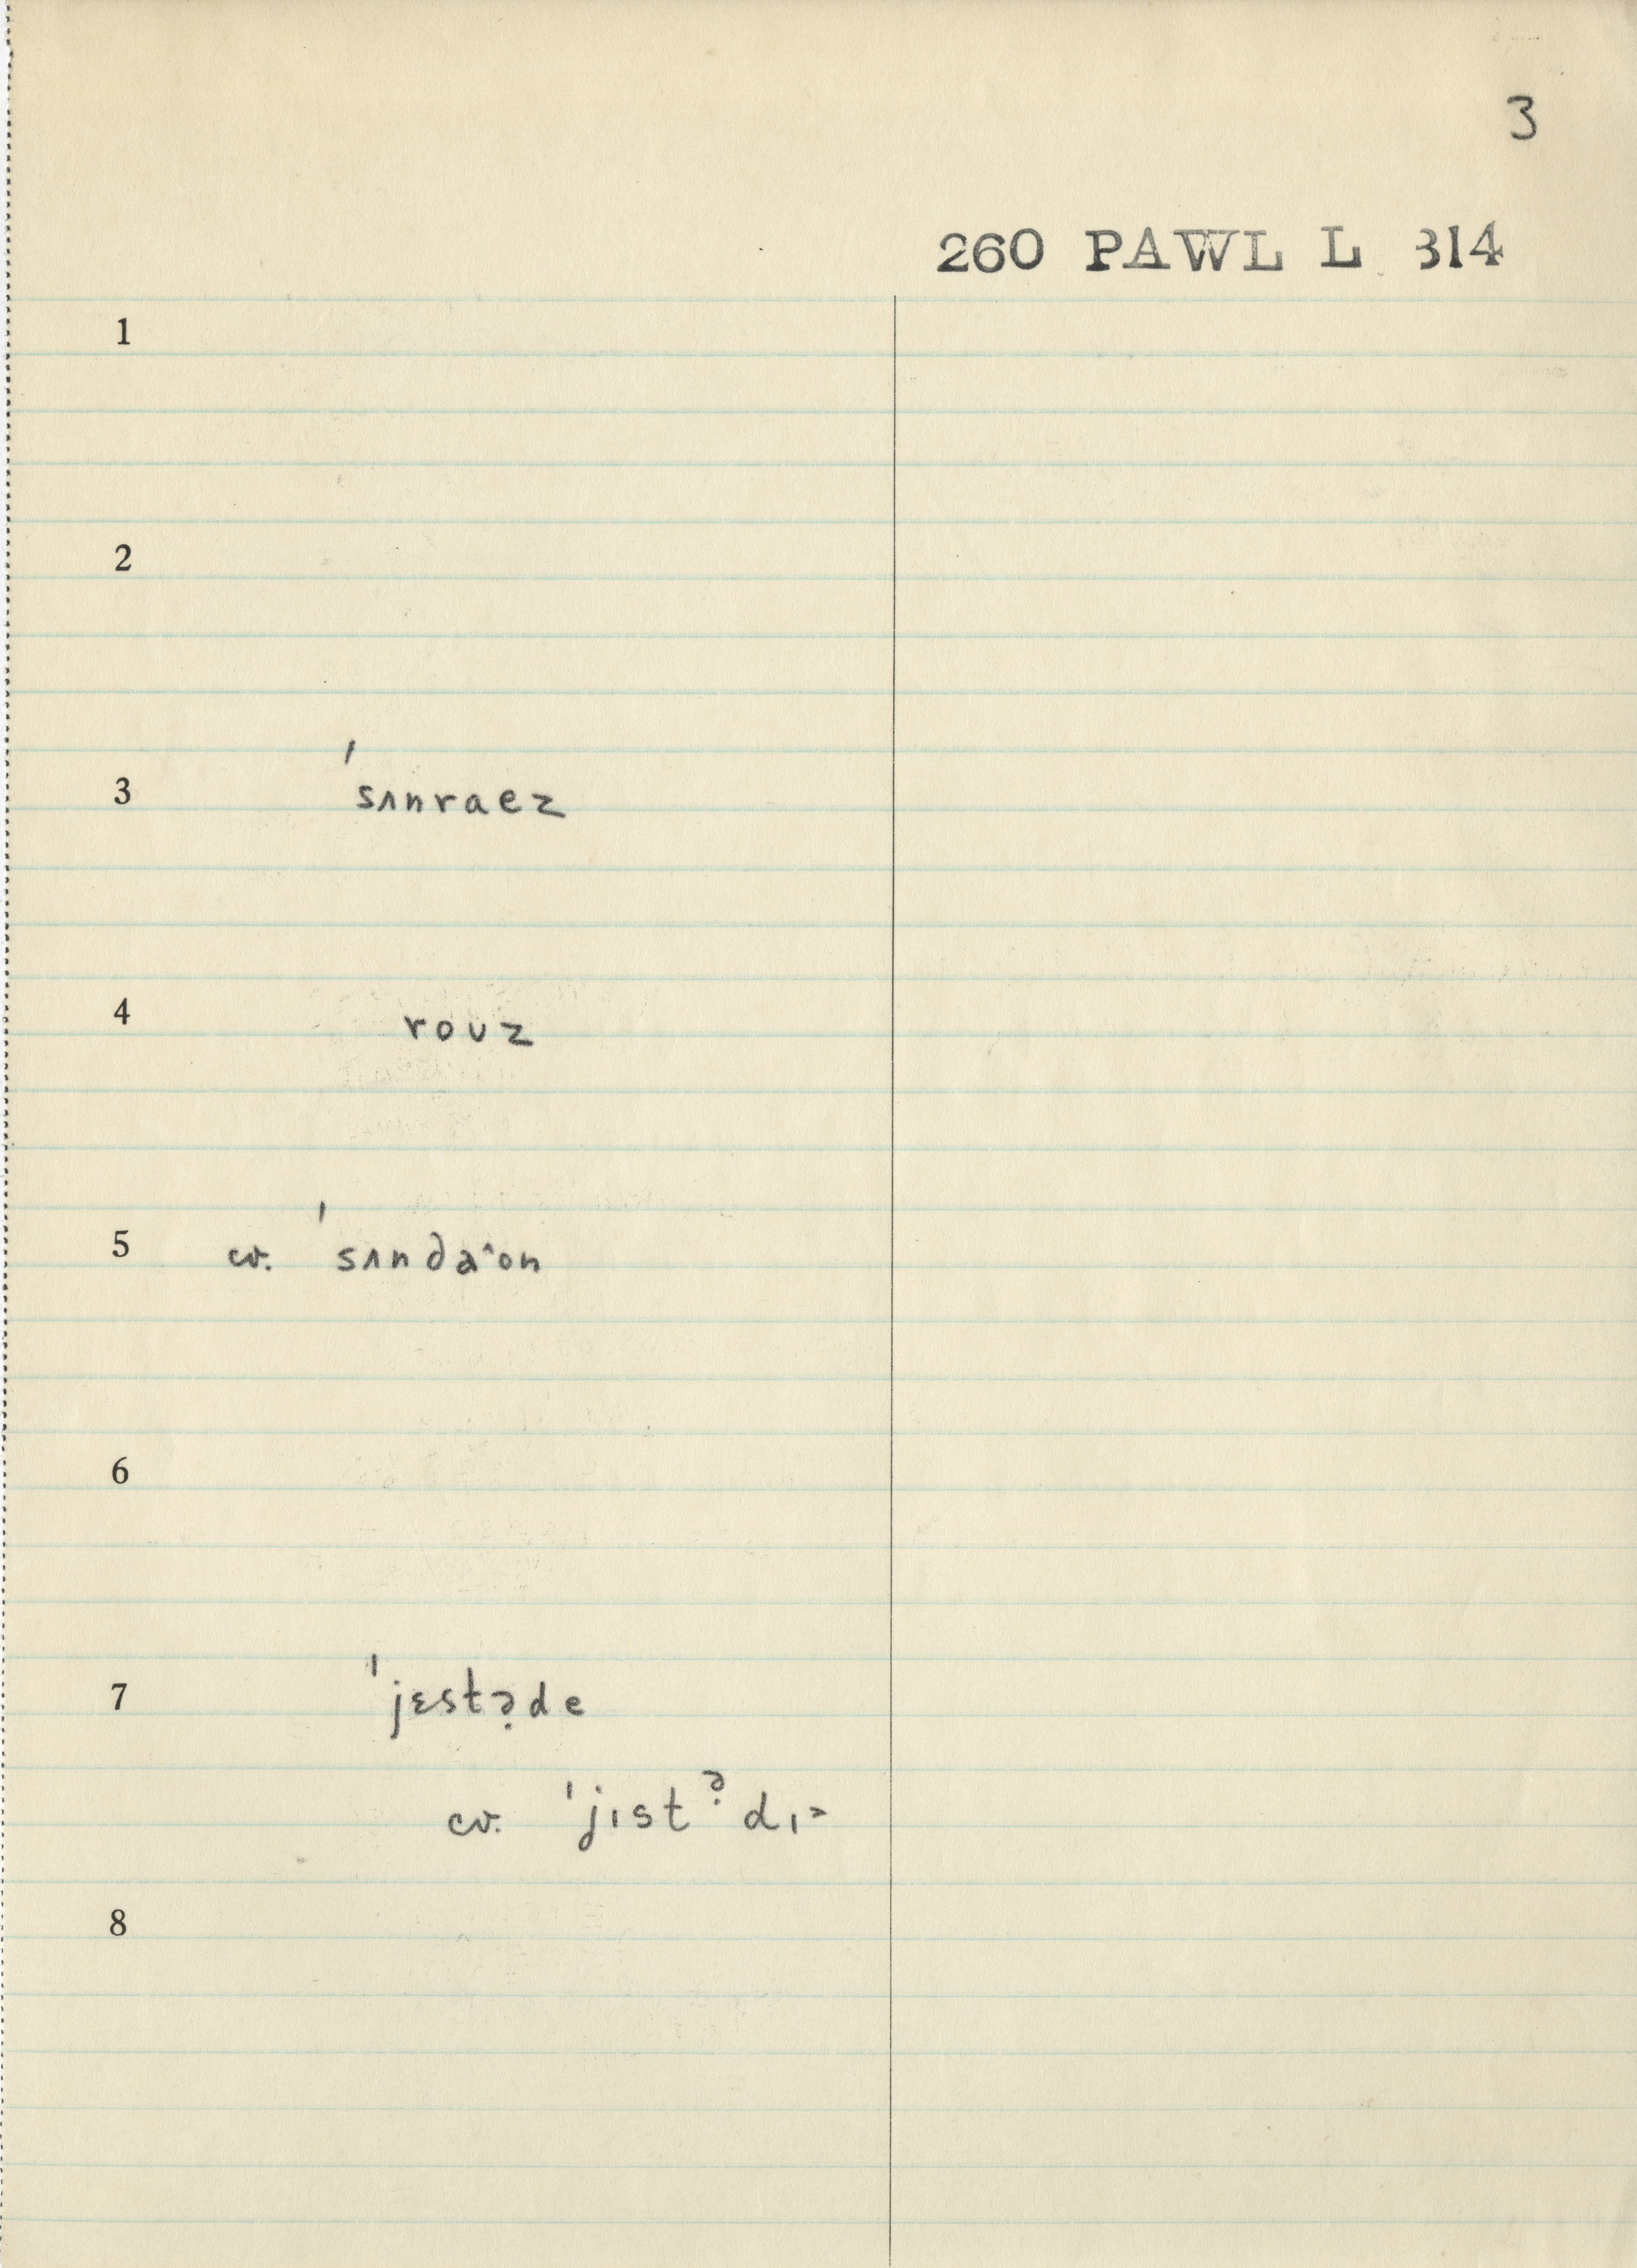 3
260 PAWL L 314
1
2
3 ˈsʌnraez
4 rouz
5 cv. ˈsʌndaˆon
6
7 ˈjɛstə̣de
cv. ˈjɪstə̣dɪ˃
8